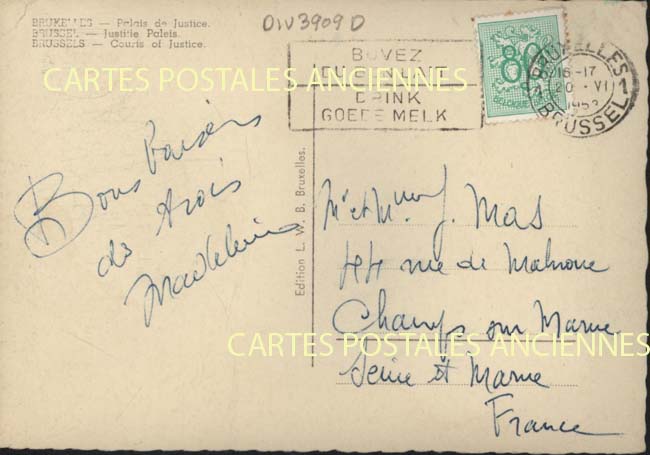 BRUXELLES — Palais de Justice.
BRUSSEL — Justitie Paleis.
BRUSSELS — Courts of Justice.
DIV3909D
BUVEZ
DRINK
GOEDE MELK
80
BRUXELLES 1
16-17
20 · VI
1953
BRUSSEL
CARTES POSTALES ANCIENNES
Bons baisers
de trois
Madeleine
Edition L. W. B. Bruxelles.
Mr et Mme J. Mas
44 rue de Malnoue
Champs sur Marne
Seine et Marne
France
CARTES POSTALES ANCIENNES